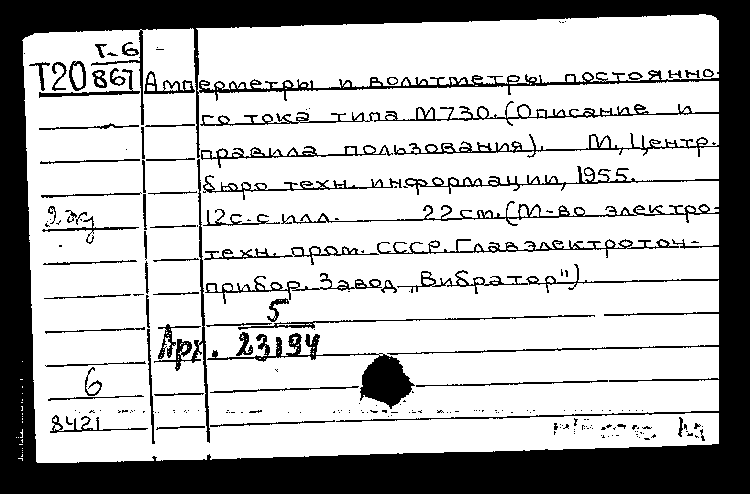 Т-6
Т20 867
Амперметры и вольтметры постоянно-
го тока типа М730. (Описание и
правила пользования). М., Центр.
бюро техн. информации, 1955.
2 экз
12 с. с илл. 22 см. (М-во электро-
техн. пром. СССР. Главэлектроточ-
прибор. Завод „Вибратор").
5
Арх. 23194
6
8421